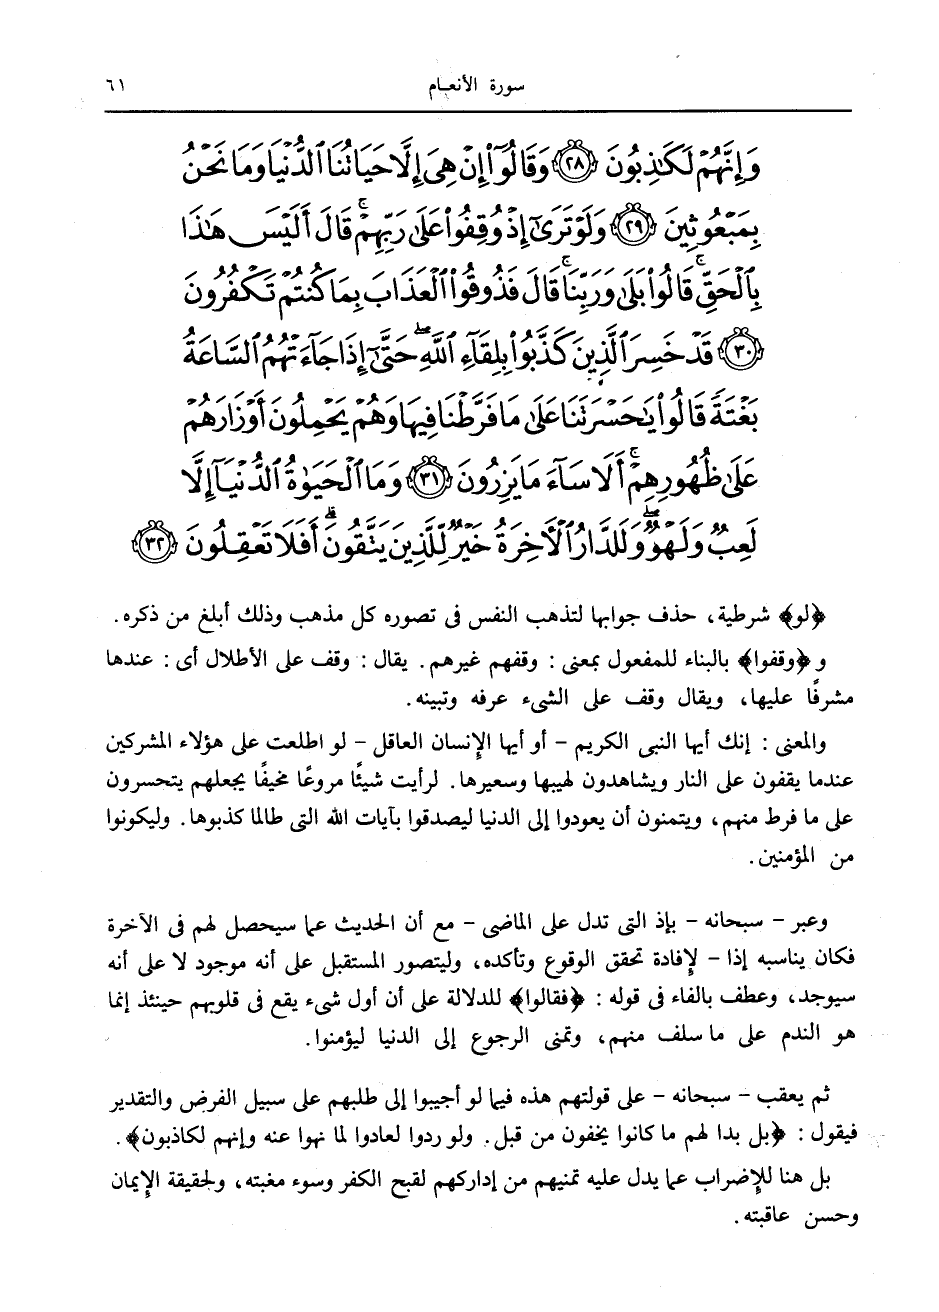 سورة الأنعام
٦١
وَإِنَّهُمْ لَكَٰذِبُونَ ﴿٢٨﴾ وَقَالُوٓا۟ إِنْ هِىَ إِلَّا حَيَاتُنَا ٱلدُّنْيَا وَمَا نَحْنُ
بِمَبْعُوثِينَ ﴿٢٩﴾ وَلَوْ تَرَىٰٓ إِذْ وُقِفُوا۟ عَلَىٰ رَبِّهِمْ ۚ قَالَ أَلَيْسَ هَٰذَا
بِٱلْحَقِّ ۚ قَالُوا۟ بَلَىٰ وَرَبِّنَا ۚ قَالَ فَذُوقُوا۟ ٱلْعَذَابَ بِمَا كُنتُمْ تَكْفُرُونَ
﴿٣٠﴾ قَدْ خَسِرَ ٱلَّذِينَ كَذَّبُوا۟ بِلِقَآءِ ٱللَّهِ ۖ حَتَّىٰٓ إِذَا جَآءَتْهُمُ ٱلسَّاعَةُ
بَغْتَةً قَالُوا۟ يَٰحَسْرَتَنَا عَلَىٰ مَا فَرَّطْنَا فِيهَا وَهُمْ يَحْمِلُونَ أَوْزَارَهُمْ
عَلَىٰ ظُهُورِهِمْ ۚ أَلَا سَآءَ مَا يَزِرُونَ ﴿٣١﴾ وَمَا ٱلْحَيَوٰةُ ٱلدُّنْيَآ إِلَّا
لَعِبٌ وَلَهْوٌ ۖ وَلَلدَّارُ ٱلْأَخِرَةُ خَيْرٌ لِّلَّذِينَ يَتَّقُونَ ۗ أَفَلَا تَعْقِلُونَ ﴿٣٢﴾
﴿لو﴾ شرطية، حذف جوابها لتذهب النفس فى تصوره كل مذهب وذلك أبلغ من ذكره.
و ﴿وقفوا﴾ بالبناء للمفعول بمعنى : وقفهم غيرهم. يقال : وقف على الأطلال أى : عندها
مشرفًا عليها، ويقال وقف على الشىء عرفه وتبينه.
والمعنى : إنك أيها النبى الكريم – أو أيها الإنسان العاقل – لو اطلعت على هؤلاء المشركين
عندما يقفون على النار ويشاهدون لهيبها وسعيرها. لرأيت شيئًا مروعًا مخيفًا يجعلهم يتحسرون
على ما فرط منهم، ويتمنون أن يعودوا إلى الدنيا ليصدقوا بآيات الله التى طالما كذبوها. وليكونوا
من المؤمنين.
وعبر – سبحانه – بإذ التى تدل على الماضى – مع أن الحديث عما سيحصل لهم فى الآخرة
فكان يناسبه إذا – لإفادة تحقق الوقوع وتأكده، وليتصور المستقبل على أنه موجود لا على أنه
سيوجد، وعطف بالفاء فى قوله : ﴿فقالوا﴾ للدلالة على أن أول شىء يقع فى قلوبهم حينئذ إنما
هو الندم على ما سلف منهم، وتمنى الرجوع إلى الدنيا ليؤمنوا.
ثم يعقب – سبحانه – على قولتهم هذه فيما لو أجيبوا إلى طلبهم على سبيل الفرض والتقدير
فيقول : ﴿بل بدا لهم ما كانوا يخفون من قبل. ولو ردوا لعادوا لما نهوا عنه وإنهم لكاذبون﴾.
بل هنا للإضراب عما يدل عليه تمنيهم من إداركهم لقبح الكفر وسوء مغبته، ولحقيقة الإيمان
وحسن عاقبته.